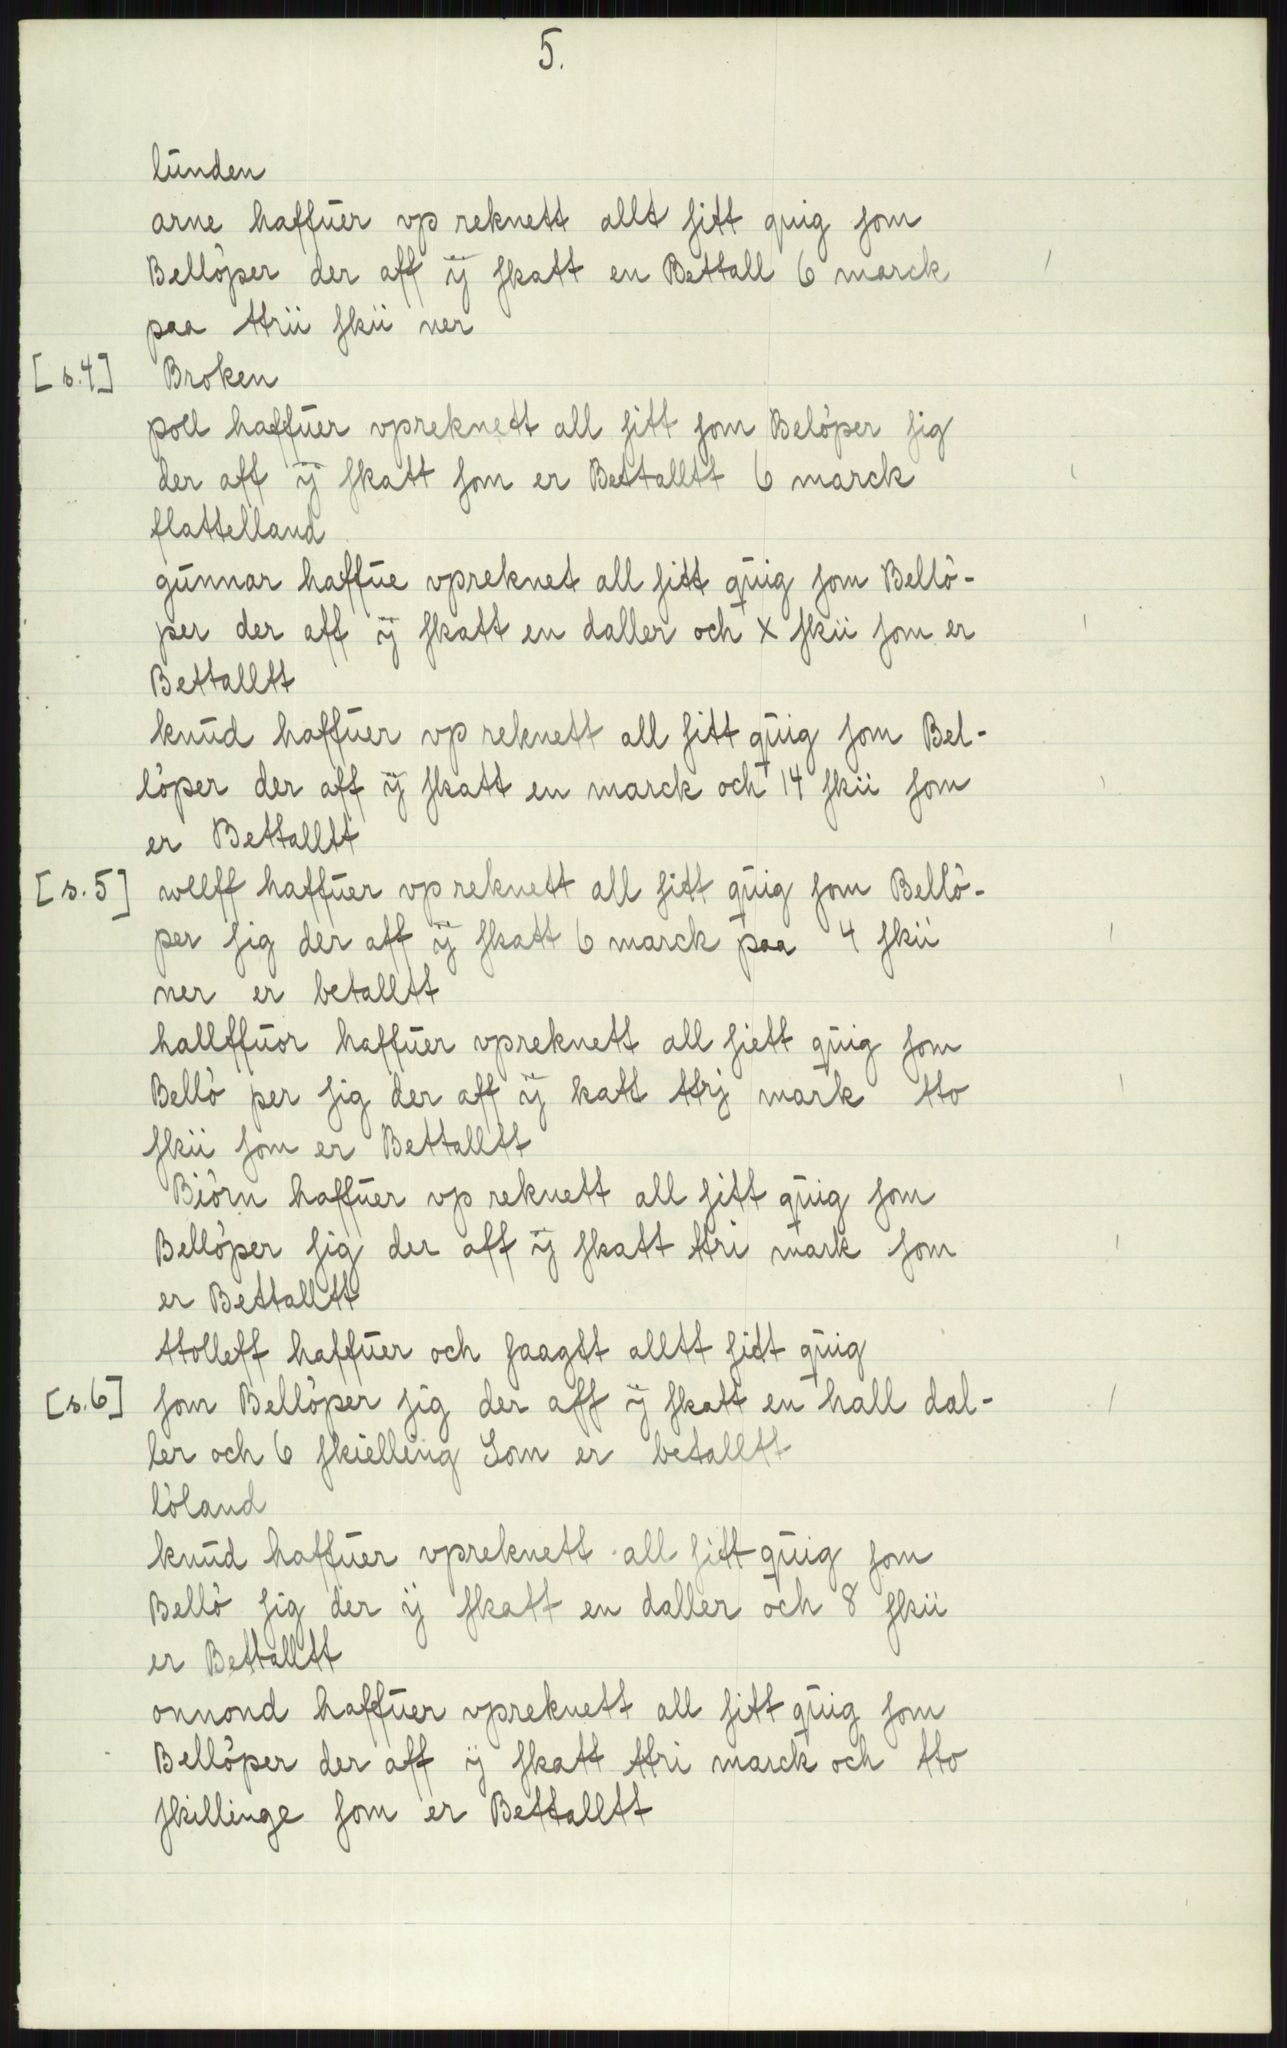 5.
lunden
arne haffuer vp reknett allt sitt quig som
Bellöper der aff ÿ skatt en Bettall 6 marck
paa ttrii skii ner
[s.4] Broken
poll haffuer vpreknett all sitt som Belöper sig
der aff ÿ skatt som er Bettalltt 6 marck
flattelland
gunnar haffue vpreknet all sitt quig som Bellö-
per der aff ÿ skatt en daller och x skii som er
Bettalltt
knud haffuer vp reknett all sitt quig som Bel-
löper der aff ÿ skatt en marck och 14 skii som
er Bettalltt
[s.5] wllff haffuer vp reknett all sitt quig som Bellö-
per sig der aff ÿ skatt 6 marck paa 4 skii
ner er betalltt
hallffuor haffuer vpreknett all siett quig som
Bellö per sig der aff ÿ katt ttrj mark tto
skii som er Bettalltt
Biörn haffuer vp reknett all sitt quig som
Bellöper sig der aff ÿ skatt ttri mark som
er Bettalltt
ttolleff haffuer och saagtt alltt sitt quig
[s.6] som Bellöper sig der aff ÿ skatt en hall dal-
ler och 6 skielling Som er betalltt
löland
knud haffuer vpreknett all sitt quig som
Bellö sig der ÿ skatt en daller och 8 skii
er Bettalltt
onnond haffuer vpreknett all sitt quig som
Bellöper der aff ÿ skatt ttri marck och tto
skillinge som er Bettalltt